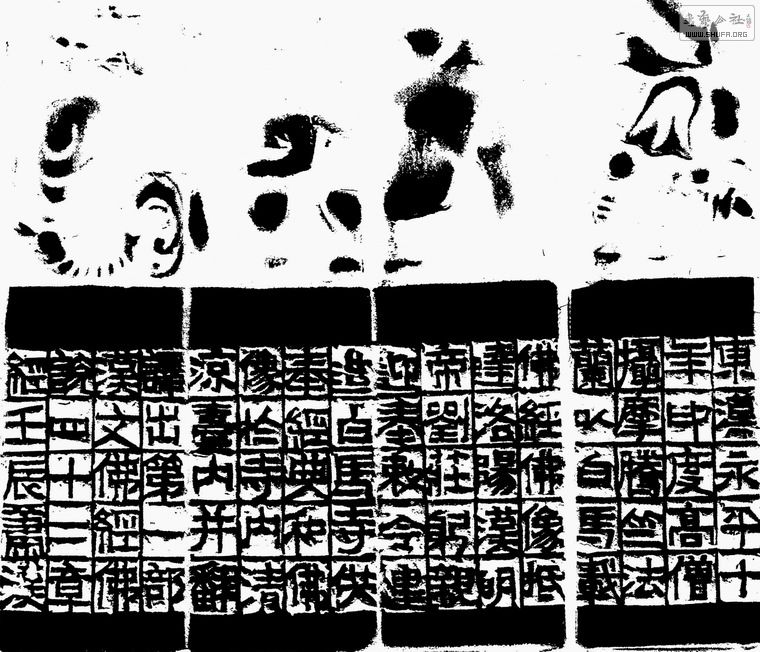 東漢永平十
年印度高僧
攝摩騰竺法
蘭以白馬載
佛經佛像抵
達洛陽漢明
帝劉莊躬親
迎奉敕令建
造白馬寺供
奉經典和佛
像於寺內清
涼臺內并翻
譯出第一部
漢文佛經佛
說四十二章
經壬辰蕭漢
WWW.SHUFA.ORG